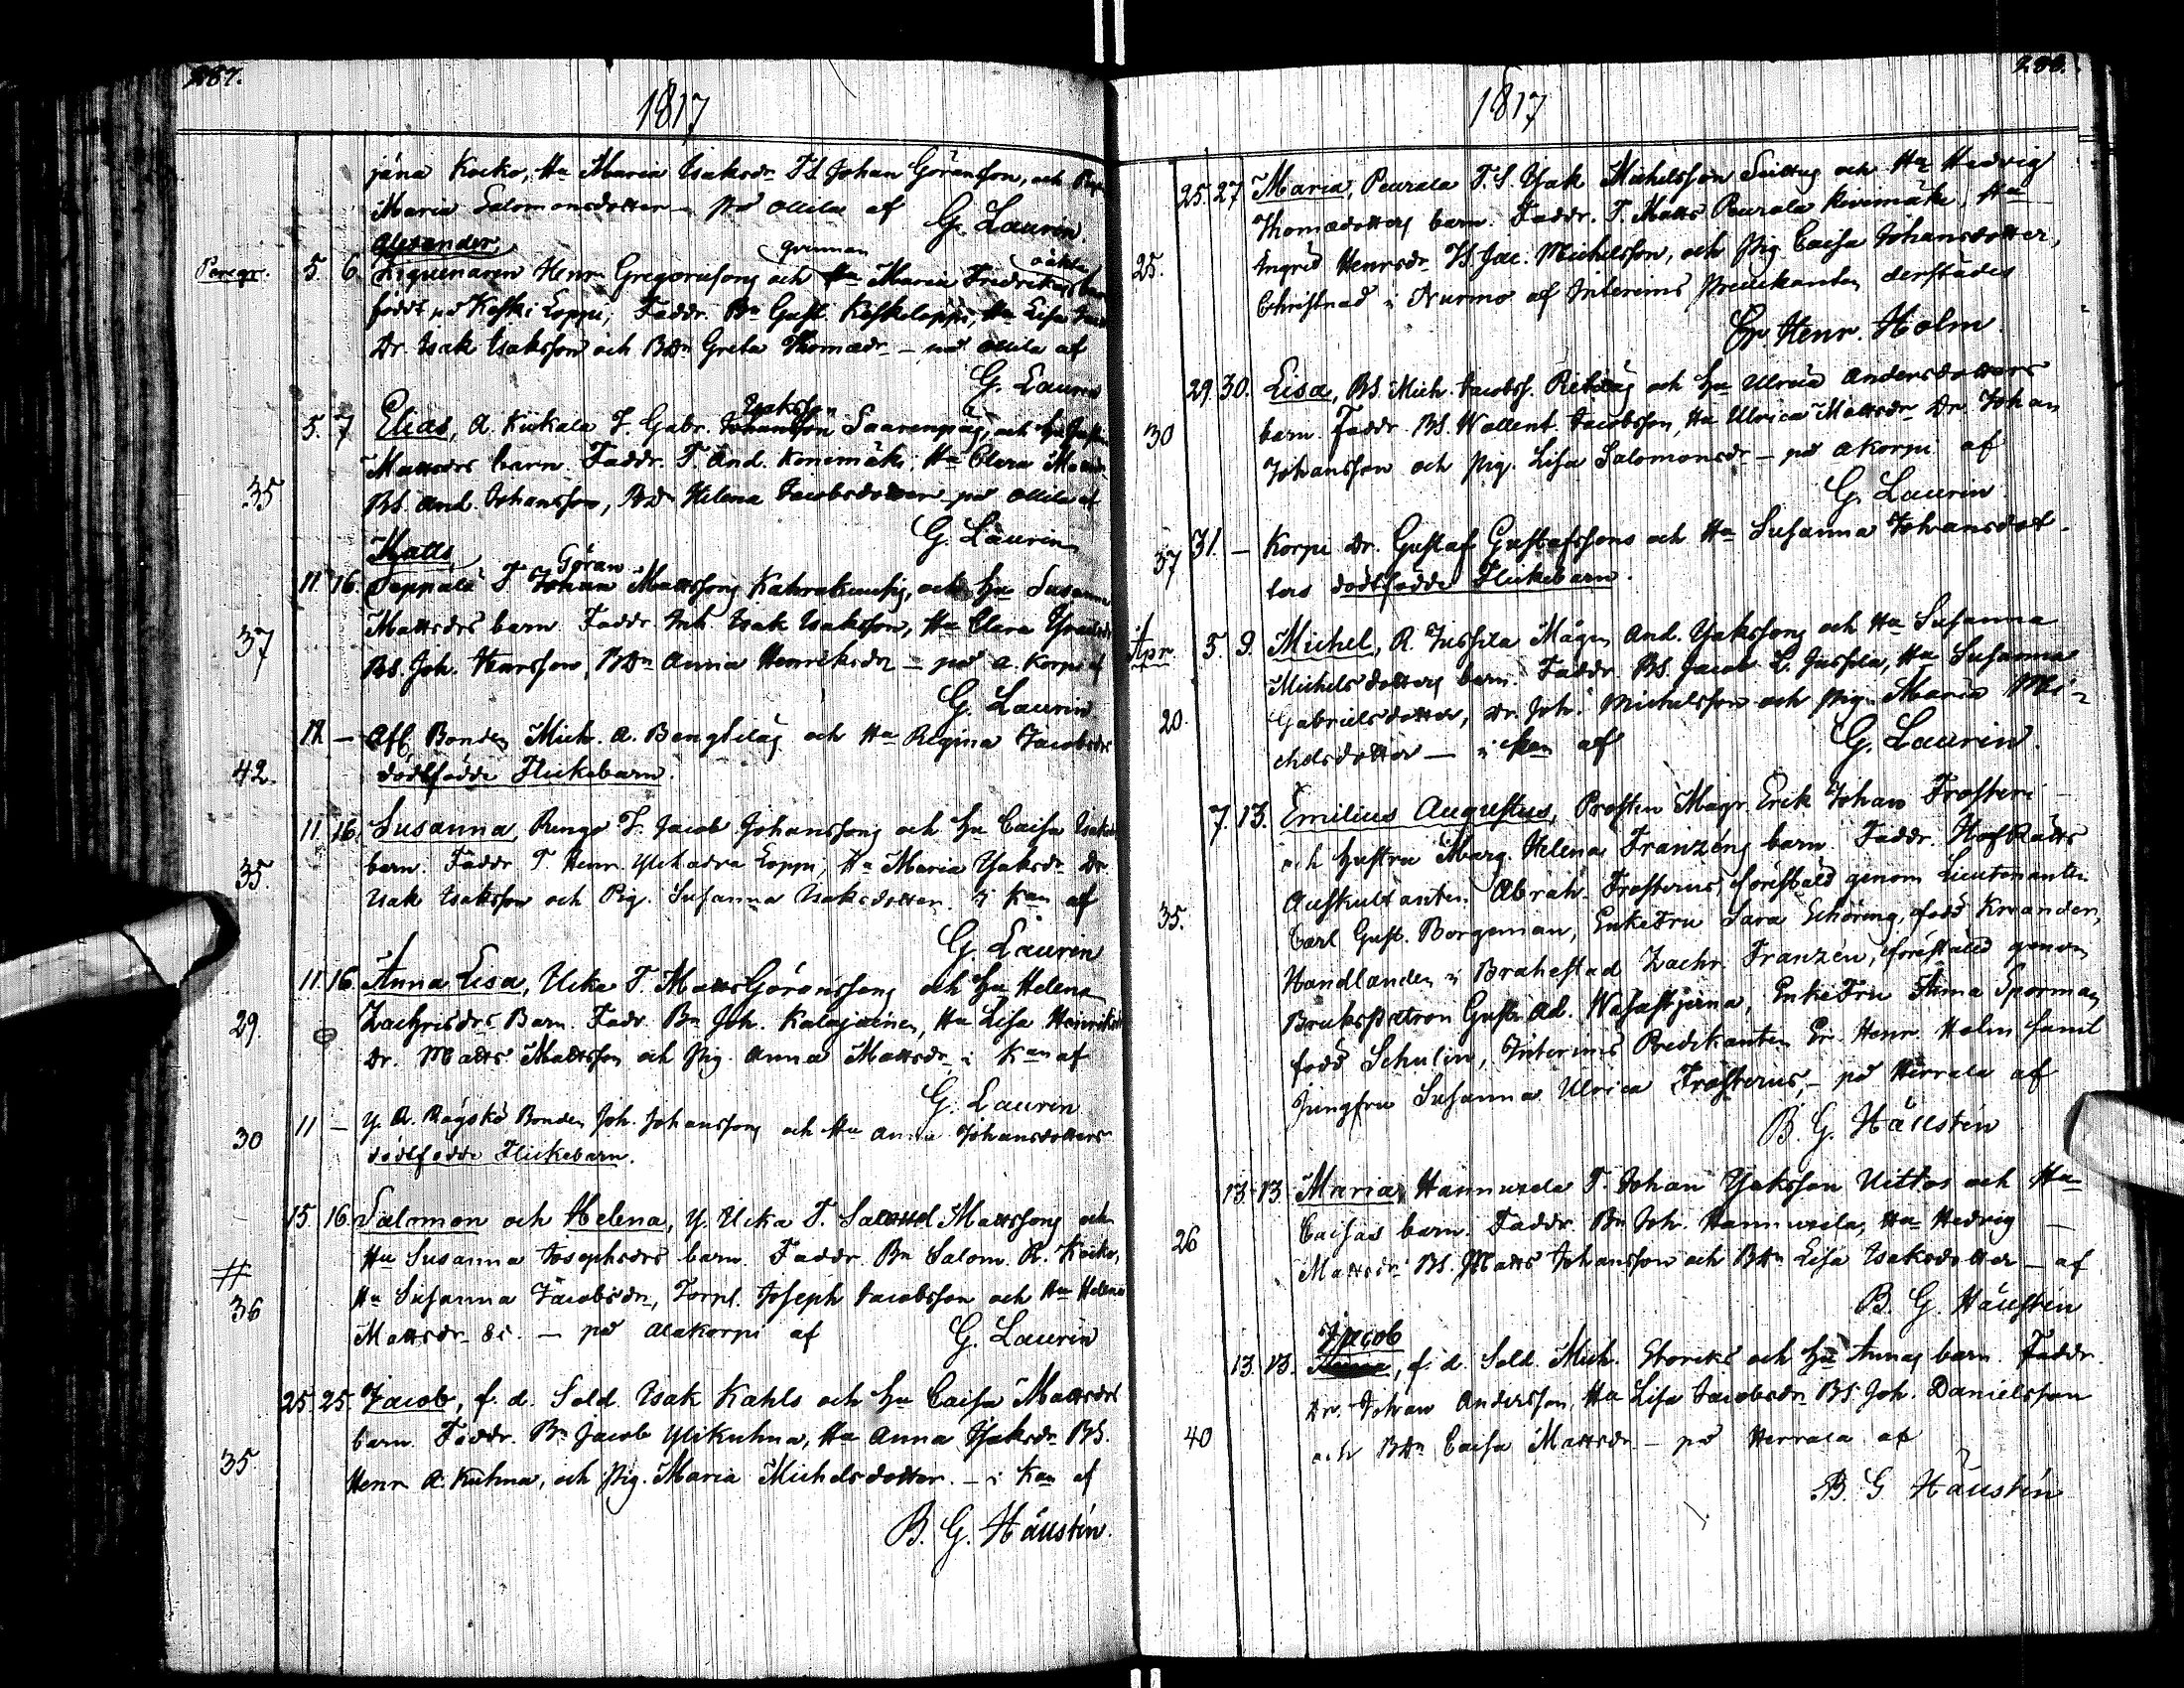 287.
1817
jäna Kocko, Ha Maria Isaksdr TS Johan Göransson, och
Maria Salomonsdotter på Ollila af G. Laurin.
Alexander,
qvinnan oäkta
Peregr. 5. 6. Henr. Gregoriusons och Ha Maria Fredriksdrs
född på Keski Loppi, Faddr. Bn Gust. Keskiloppi, Ha Lisa
Dr. Isak Isaksson och BDn Greta Thomædr – på Ollila af
G. Laurin
Isaksson
5. 7 Elias, A. Kiikala T. Gabr. Johansson Saarenpää, och Hu
Mattsdrs barn. Faddr. T. And. Konemäki, Ha Clara
35 BS. And. Johansson, BD Helena Jacobsdotter på Ollila af
G. Laurin
Matts,
Göran
11. 16. Seppälä T Johan Mattssons och Hu Susanna
37 Mattsdrs barn. Faddr. Inh. Isak Isaksson, Ha Clara
BS. Joh. Henrsson, BDn Anna Henriksdr – på A. Korpi af
G. Laurin
12 – Aff. Bonden Mich. A. Bengtilas och Ha Regina Jacobsdrs
42. dödfödde Flickebarn.
11. 16. Susanna, Rengo T. Jacob Johanssons och Hu Caisa
35. barn. Faddr. T. Henr. Loppi, Ha Maria Isaksdr Dr.
Isak Isaksson och Pig. Susanna Isaksdotter. i Kan af
G. Laurin
11. 16. Anna Lisa, Ucka T. Matts Göranssons och Hu Helena
29. Zachrisdrs Barn. Fadr. Bn Joh. Kalajainen, Ha Lisa
Dr. Matts Mattsson och Pig. Anna Mattsdr i Kan af
G. Laurin
30 11 – Y. A. Rågskö Bonden Joh. Johanssons och Ha Anna Johansdotters
dödfödde Flickebarn.
15. 16. Salomon och Helena, Y. Ucka T. Mattssons och
# Ha Susanna Josephsdrs barn. Faddr. Bn Salom. A. Kocko,
36 Ha Susanna Jacobsdr, Torp. Joseph Jacobsson och Ha Helena
Mattsdr &c. – på Alakorpi af G. Laurin
25. 25. Jacob, f. d. Sold. Isak Kahls och Hu Caisa Mattsdrs
barn. Faddr. Bn Jacob Ylikuhna, Ha Anna Isaksdr BS.
35 Henr A. Kuhna, och Pig. Maria Michelsdotter – i Kan af
B. G. Hällstén.
288.
1817
25. 27 Maria, Peurala T. S. Isak Michelsson och Ha Hedvig
Thomædotters barn. Faddr. T. Matts Peurala Kivimäki, Ha
25. Ingrid Henrsdr TS Jac. Michelsson, och Pig Caisa Johansdotter,
Christnad i Nurmo af Interims Predikanten derstädes
Er. Henr. Holm.
29. 30. Lisa, BS. Mich. Jacobss. och Hu Ulrica Andersdotters
30 barn. Faddr. BS. Wallent. Jacobsson, Ha Ulrica Mattsdr Dr. Johan
Johansson och Pig. Lisa Salomonsdr – på Akorpi af
G. Laurin
37 31. – Korpi Dr. Gustaf Gustafssons och Ha Susanna Johansdot-
ters dödfödde Flickebarn.
Apr. 5. 9. Michel, R. Jussila Mågen And. Isakssons och Ha Susanna
Michelsdotters barn. Faddr. BS. Jacob L. Jussila, Ha Susanna
20. Gabrielsdotter, Dr. Joh. Michelsson och Pig. Maria Mi-
chelsdotter – i Kan af G. Laurin.
7. 13. Emilius Augustus, Prosten Magr. Erik Johan Frosteri
och Hustru Marg. Helena Franzéns barn Faddr. Hof Rätts
Auskultanten Abrah. Frosterus, föreställd genom Lieutenanten
35. Carl Gust. Borgeman, EnkeFru Sara Schöring, född Kreander,
Handlanden i Brahestad Zachr. Franzén, föreställd genom
Bruks Patron Gust. Ad. Wasastjerna, EnkeFru Anna Sporman
född Schulin, Interims Predikanten Er. Henr. Holm samt
Jungfru Susanna Ulrica Frosterus, – på Herrala af
B. G. Hällstén
13. 13. Maria, Hannuxela T. Johan Isaksson Uittos och Ha
26 Caisas barn. Faddr. Bn Joh. Hannuxela, Ha Hedvig –
Mattsdr BS. Matts Johansson och BDn Lisa Isaksdotter – af
B. G. Hällstén
Jacob
13. 13. f. d. Sold. Mich. Storcks och Hu Annas barn. Faddr
Dr. Johan Andersson, Ha Lisa Jacobsdr BS. Joh. Danielsson
40 och BDn Caisa Mattsdr – på Herrala af
B. G Hällstén